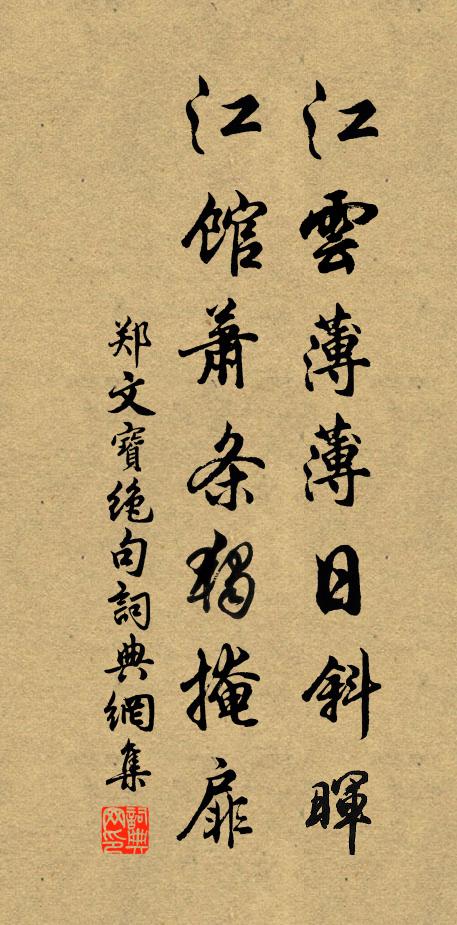 江雲薄薄日斜暉
江館蕭条獨掩扉
郑文寶绝句詞典網集
詞典網印